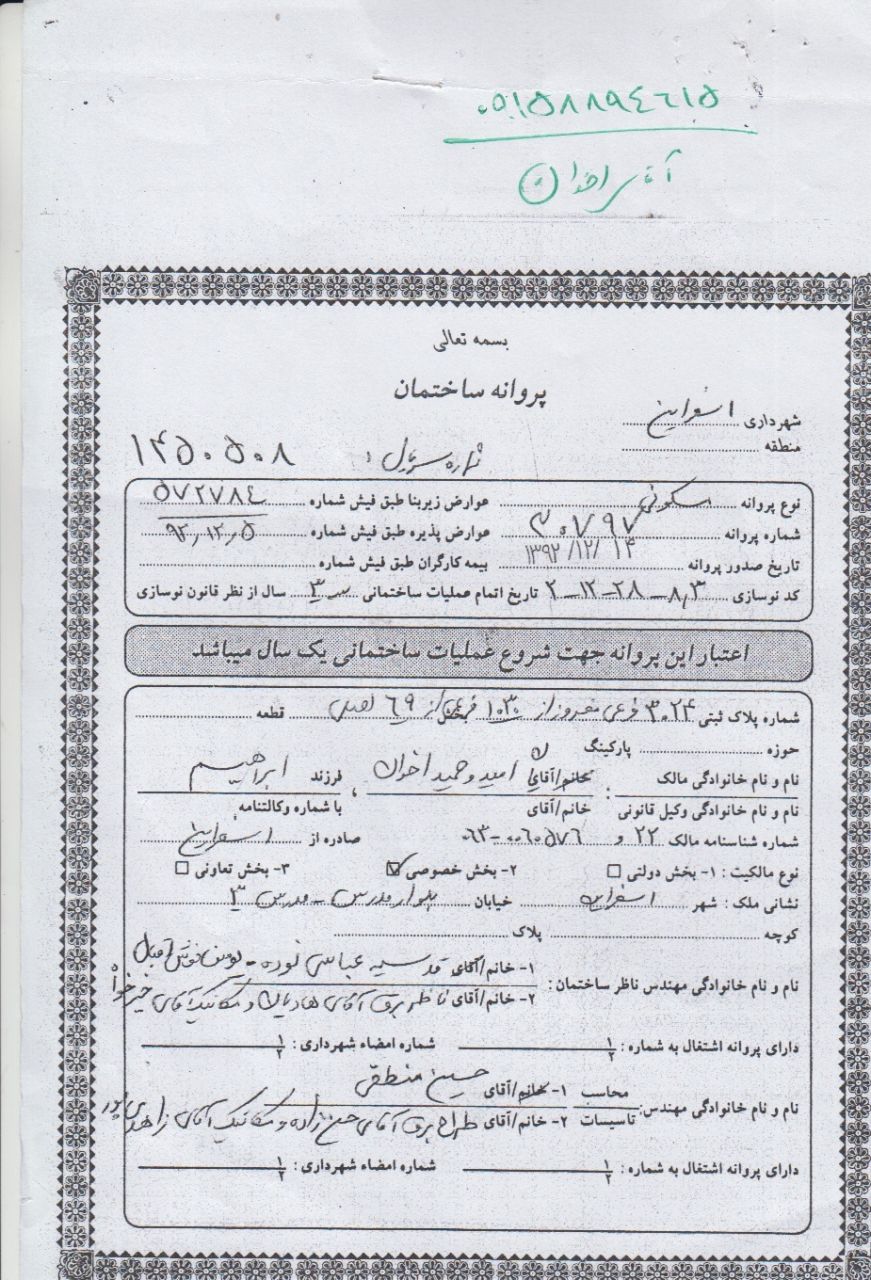 ۰۵۱۵۸۸۹۴۶۱۵
آقای اخوان
بسمه تعالی
پروانه ساختمان
شهرداری اسفراین
منطقه
شماره سریال : ۱۴۵۰۵۰۸
نوع پروانه مسکونی عوارض زیربنا طبق فیش شماره ۵۷۲۷۸۴
شماره پروانه ۳۰۷۹۷ عوارض پذیره طبق فیش شماره ۹۲٫۱۲٫۵
تاریخ صدور پروانه ۱۳۹۲/۱۲/۱۴ بیمه کارگران طبق فیش شماره
کد نوسازی ۲-۱۲-۲۸-۸٫۳ تاریخ اتمام عملیات ساختمانی ۳ سال از نظر قانون نوسازی
اعتبار این پروانه جهت شروع عملیات ساختمانی یک سال میباشد
شماره پلاک ثبتی ۳۰۲۴ فرعی مفروز از ۱۰۳۰ فرعی از ۶۹ اصلی بخش قطعه
حوزه پارکینگ
نام و نام خانوادگی مالک : خانم/آقای امید و حمید اخوان فرزند ابراهیم
نام و نام خانوادگی وکیل قانونی خانم/آقای با شماره وکالتنامه
شماره شناسنامه مالک ۲۲ و ۰۶۳-۰۰۶۰۵۷۶ صادره از اسفراین
نوع مالکیت : ۱- بخش دولتی ☐ ۲- بخش خصوصی ☑ ۳- بخش تعاونی ☐
نشانی ملک : شهر اسفراین خیابان بلوار مدرس - مدرس ۳
کوچه پلاک
نام و نام خانوادگی مهندس ناظر ساختمان : ۱- خانم/آقای قدسیه عباسی نوده -
۲- خانم/آقای ناظر برق آقای هادیان و مکانیک آقای خیرخواه
دارای پروانه اشتغال به شماره : ۱ ۲ شماره امضاء شهرداری : ۱ ۲
نام و نام خانوادگی مهندس: محاسب ۱- خانم/آقای حسین منطقی
تاسیسات ۲- خانم/آقای طراح برق آقای حسن زاده و مکانیک آقای زاهدی پور
دارای پروانه اشتغال به شماره : ۱ ۲ شماره امضاء شهرداری : ۱ ۲